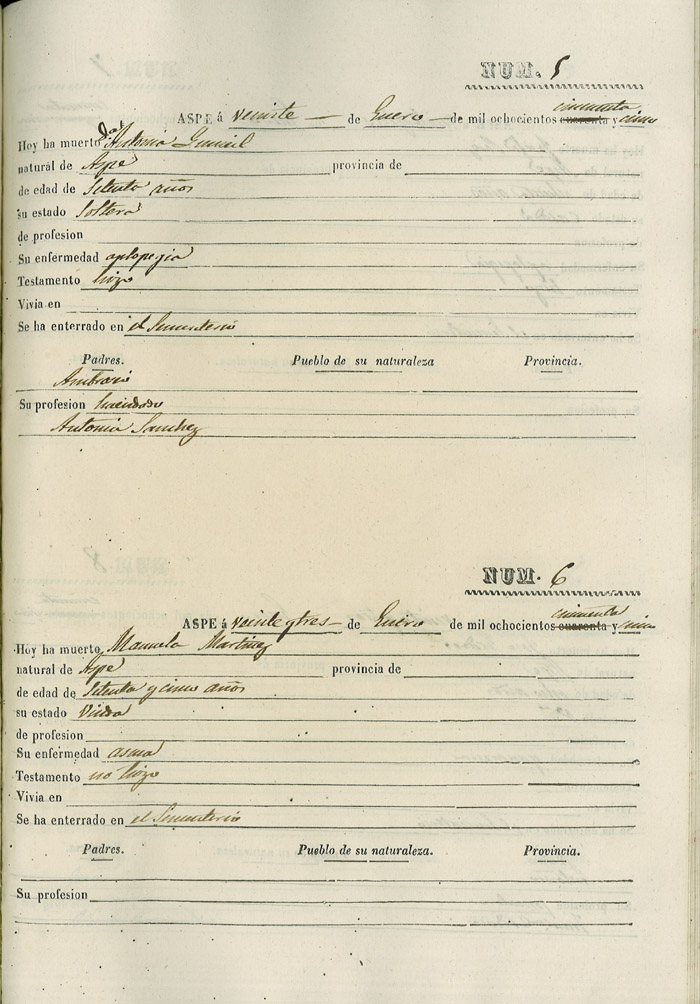 NUM. 5
ASPE á veinte de Enero de mil ochocientos cincuenta cuarenta y cinco
Hoy ha muerto Dª Antonia
natural de Aspe provincia de
de edad de Setenta años
su estado Soltera
de profesion
Su enfermedad aplopegia
Testamento hizo
Vivia en
Se ha enterrado en el Sementerio
Padres. Pueblo de su naturaleza Provincia.
Ambrosio
Su profesion hacendado
Antonia Sanchez
NUM. 6
ASPE á veinte y tres de Enero de mil ochocientos cincuenta cuarenta y cinco
Hoy ha muerto Manuela Martinez
natural de Aspe provincia de
de edad de Setenta y cinco años
su estado Viuda
de profesion
Su enfermedad asma
Testamento no hizo
Vivia en
Se ha enterrado en el Sementerio
Padres. Pueblo de su naturaleza. Provincia.
Su profesion